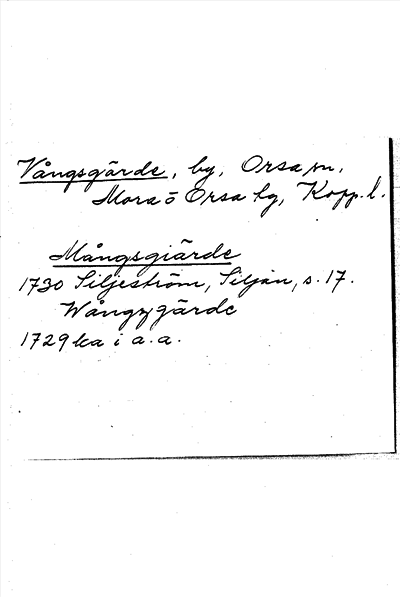 Vångsgärde, by, Orsa sn,
Mora ō Orsa tg, Kopp. l.
Mångsgiärde
1730 Siljeström, Siljan, s. 17.
Wångzgärde
1729 ka i a. a.